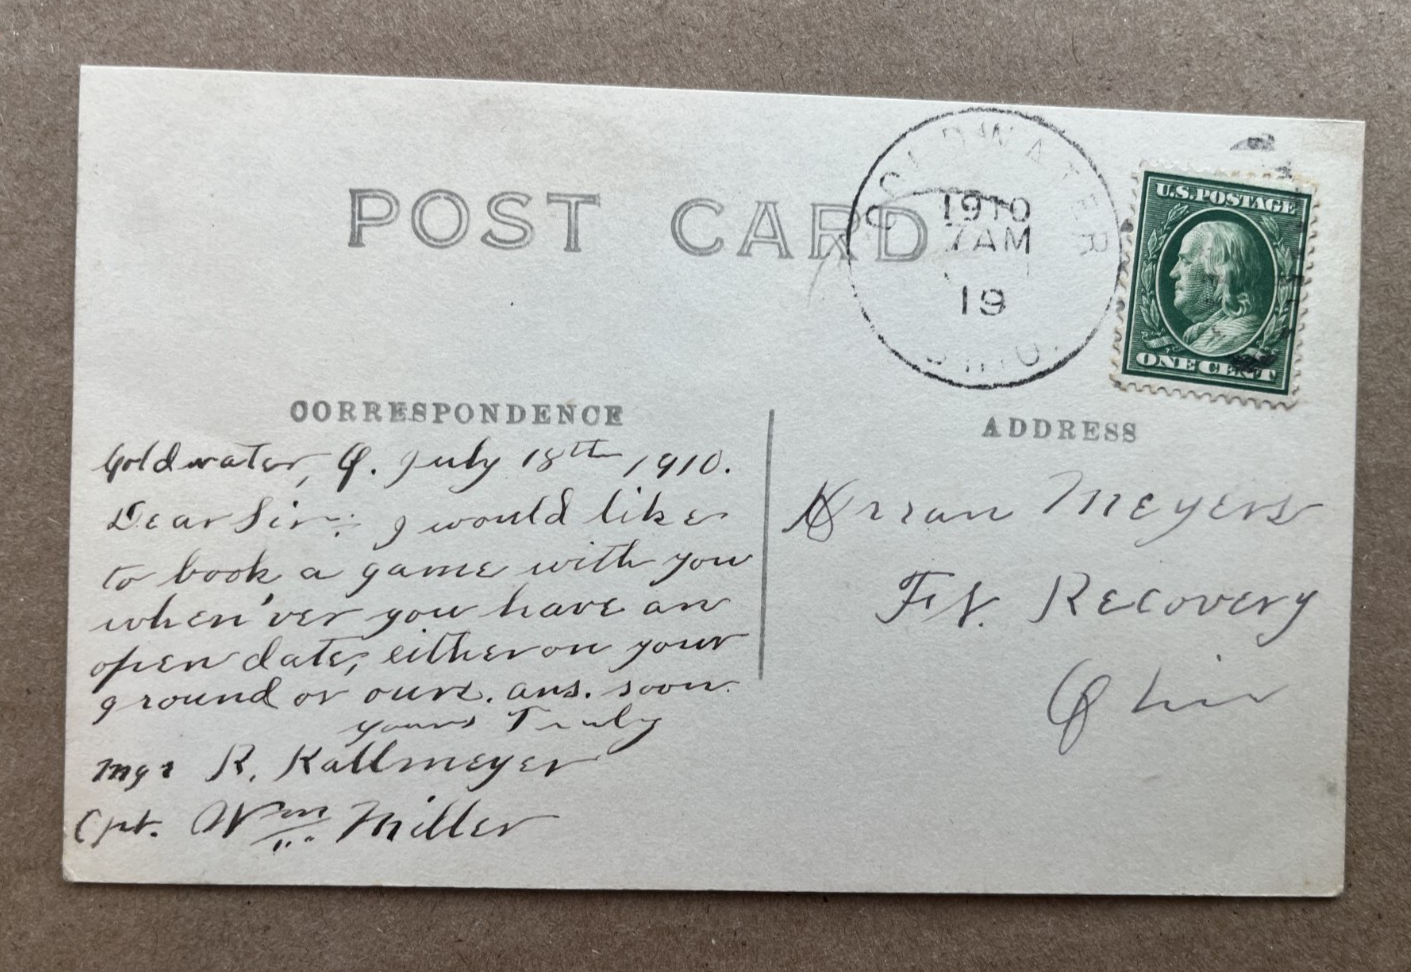 POST CARD
COLDWATER
1910
7 AM
19
OHIO.
U.S. POSTAGE
ONE CENT
CORRESPONDENCE
Coldwater, O. July 18th 1910.
Dear Sir:- I would like
to book a game with you
when'ver you have an
open date, either on your
ground or ours. ans. soon.
yours Truly
Mgr R. Kallmeyer
Cpt. Wm Miller
ADDRESS
Orran Meyers
Ft. Recovery
Ohio